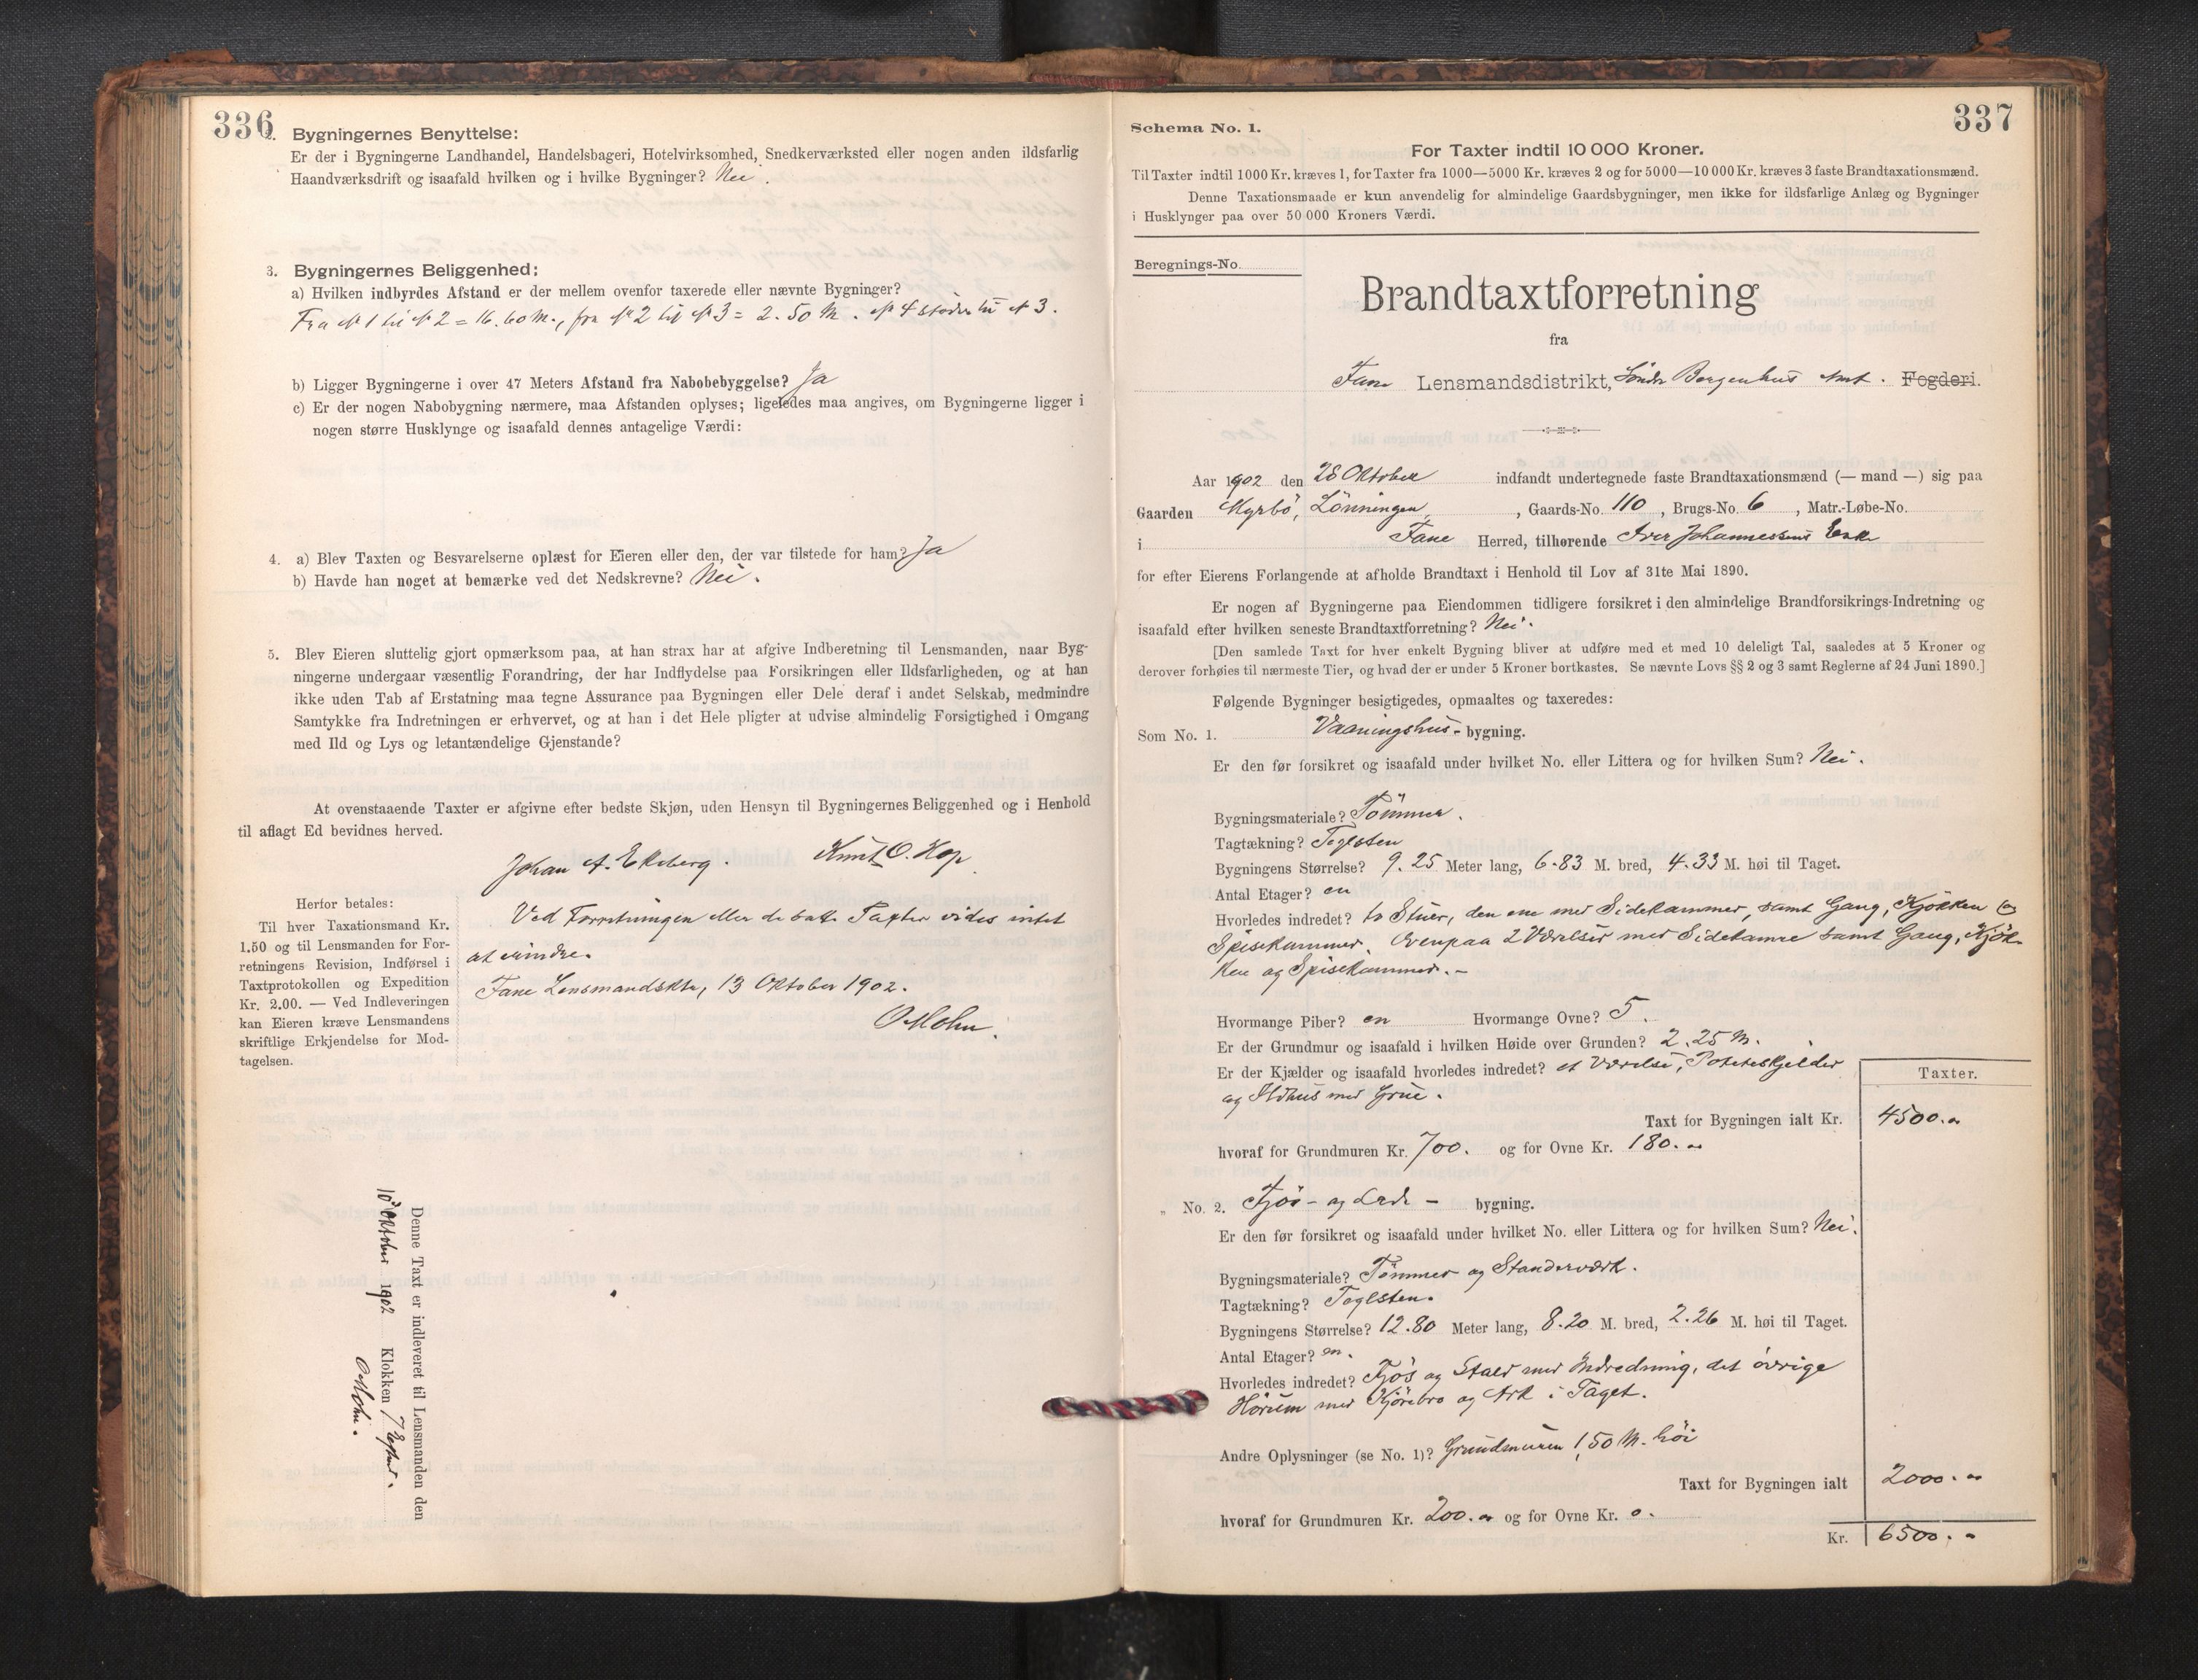 336
2. Bygningernes Benyttelse:
Er der i Bygningerne Landhandel, Handelsbageri, Hotelvirksomhed, Snedkerværksted eller nogen anden ildsfarlig
Haandværksdrift og isaafald hvilken og i hvilke Bygninger? Nei.
3. Bygningernes Beliggenhed:
a) Hvilken indbyrdes Afstand er der mellem ovenfor taxerede eller nævnte Bygninger?
Fra № 1 til № 2 = 16.60 M., fra № 2 til № 3 = 2.50 M. № 4 støder til № 3.
b) Ligger Bygningerne i over 47 Meters Afstand fra Nabobebyggelse? Ja
c) Er der nogen Nabobygning nærmere, maa Afstanden oplyses; ligeledes maa angives, om Bygningerne ligger i
nogen større Husklynge og isaafald dennes antagelige Værdi:
4. a) Blev Taxten og Besvarelserne oplæst for Eieren eller den, der var tilstede for ham? Ja
b) Havde han noget at bemærke ved det Nedskrevne? Nei.
5. Blev Eieren sluttelig gjort opmærksom paa, at han strax har at afgive Indberetning til Lensmanden, naar Byg-
ningerne undergaar væsentlig Forandring, der har Indflydelse paa Forsikringen eller Ildsfarligheden, og at han
ikke uden Tab af Erstatning maa tegne Assurance paa Bygningen eller Dele deraf i andet Selskab, medmindre
Samtykke fra Indretningen er erhvervet, og at han i det Hele pligter at udvise almindelig Forsigtighed i Omgang
med Ild og Lys og letantændelige Gjenstande?
At ovenstaaende Taxter er afgivne efter bedste Skjøn, uden Hensyn til Bygningernes Beliggenhed og i Henhold
til aflagt Ed bevidnes herved.
Johan A. Ekeberg. Knut O. Hop.
Herfor betales:
Til hver Taxationsmand Kr.
1.50 og til Lensmanden for For-
retningens Revision, Indførsel i
Taxtprotokollen og Expedition
Kr. 2.00. — Ved Indleveringen
kan Eieren kræve Lensmandens
skriftlige Erkjendelse for Mod-
tagelsen.
Ved Forretningen eller de satte Taxter vides intet
at erindre.
Fane Lensmandsktr, 13 Oktober 1902.
O Mohn.
Denne Taxt er indleveret til Lensmanden den
10 Oktober 1902 Klokken 7 Efterm.
O Mohn.
337
Schema No. 1.
For Taxter indtil 10 000 Kroner.
Til Taxter indtil 1000 Kr. kræves 1, for Taxter fra 1000—5000 Kr. kræves 2 og for 5000—10 000 Kr. kræves 3 faste Brandtaxationsmænd.
Denne Taxationsmaade er kun anvendelig for almindelige Gaardsbygninger, men ikke for ildsfarlige Anlæg og Bygninger
i Husklynger paa over 50 000 Kroners Værdi.
Beregnings-No.
Brandtaxtforretning
fra
Fane Lensmandsdistrikt, Søndr Bergenhus Amt. Fogderi.
Aar 1902 den 28 Oktober indfandt undertegnede faste Brandtaxationsmænd (— mand —) sig paa
Gaarden Myrbö, Lönningen, Gaards-No. 110, Brugs-No. 6, Matr.-Løbe-No.
i Fane Herred, tilhørende Iver Johannessens Enke
for efter Eierens Forlangende at afholde Brandtaxt i Henhold til Lov af 31te Mai 1890.
Er nogen af Bygningerne paa Eiendommen tidligere forsikret i den almindelige Brandforsikrings-Indretning og
isaafald efter hvilken seneste Brandtaxtforretning? Nei.
[Den samlede Taxt for hver enkelt Bygning bliver at udføre med et med 10 deleligt Tal, saaledes at 5 Kroner og
derover forhøies til nærmeste Tier, og hvad der er under 5 Kroner bortkastes. Se nævnte Lovs §§ 2 og 3 samt Reglerne af 24 Juni 1890.]
Følgende Bygninger besigtigedes, opmaaltes og taxeredes:
Som No. 1. Vaaningshus-bygning.
Er den før forsikret og isaafald under hvilket No. eller Littera og for hvilken Sum? Nei.
Bygningsmateriale? Tömmer.
Tagtækning? Teglsten
Bygningens Størrelse? 9.25 Meter lang, 6.83 M. bred, 4.33 M. høi til Taget.
Antal Etager? en
Hvorledes indredet? to Stuer, den ene med Sidekammer, samt Gang, Kjökken og
Spisekammer. Ovenpaa 2 Værelser med Sidekamre samt Gang, Kjök-
ken og Spisekammer. -
Hvormange Piber? en Hvormange Ovne? 5.
Er der Grundmur og isaafald i hvilken Høide over Grunden? 2.25 M.
Er der Kjælder og isaafald hvorledes indredet? et Værelse, Poteteskjelder
og Ildhus med Grue.
Taxter.
Taxt for Bygningen ialt Kr. 4500.„
hvoraf for Grundmuren Kr. 700. og for Ovne Kr. 180.„
„ No. 2. Fjös- og Lade - bygning.
Er den før forsikret og isaafald under hvilket No. eller Littera og for hvilken Sum? Nei.
Bygningsmateriale? Tömmer og Standerværk.
Tagtækning? Teglsten.
Bygningens Størrelse? 12.80 Meter lang, 8.20 M. bred, 2.26 M. høi til Taget.
Antal Etager? en.
Hvorledes indredet? Fjös og Stald med Indredning, det övrige
Hörum med Kjörebro og Ark i Taget.
Andre Oplysninger (se No. 1)? Grundmuren 1,50 M. höi
Taxt for Bygningen ialt 2000.„
hvoraf for Grundmuren Kr. 200.„ og for Ovne Kr. 0.
Kr. 6500.„